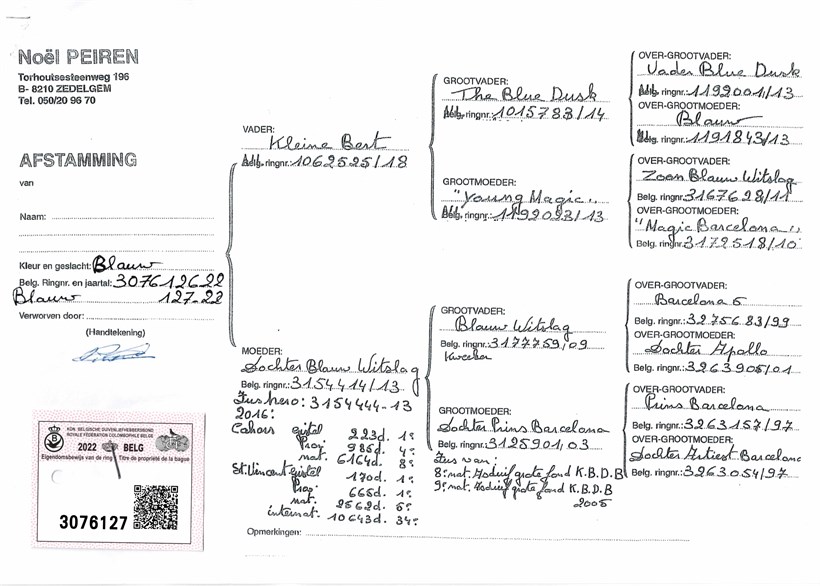 Noël PEIREN
Torhoutsesteenweg 196
B- 8210 ZEDELGEM
Tel. 050/20 96 70
AFSTAMMING
van
Naam:
Kleur en geslacht: Blauw
Belg. Ringnr. en jaartal: 3076126-22
Blauw 127-22
Verworven door:
(Handtekening)
KON. BELGISCHE DUIVENLIEFHEBBERSBOND
ROYALE FÉDÉRATION COLOMBOPHILE BELGE
2022 BELG
Eigendomsbewijs van de ring Titre de propriété de la bague
3076127
VADER:
Kleine Bert
Belg. ringnr.: 1062525/18
MOEDER:
Dochter Blauw Witslag
Belg. ringnr.: 3154414/13
Zus hero: 3154444-13
2016:
Cahors gistel 223d. 1e
Prov. 985d. 1e
nat. 6164d. 8e
St. Vincent gistel 170d. 1e
Prov. 665d. 1e
nat. 2562d. 5e
internat. 10643d. 34e
Opmerkingen:
GROOTVADER:
The Blue Dusk
Belg. ringnr. 1015783/14
GROOTMOEDER:
"Young Magic"
Belg. ringnr. 1192023/13
GROOTVADER:
Blauw Witslag
Belg. ringnr. 3177759/09
Kweker
GROOTMOEDER:
Dochter Prins Barcelona
Belg. ringnr.: 3125901/03
Zus van:
8e nat. Asduif grote fond K.B.D.B
9e nat. Asduif grote fond K.B.D.B
2005
OVER-GROOTVADER:
Vader Blue Dusk
Belg. ringnr.: 1192001/13
OVER-GROOTMOEDER:
Blauw
Belg. ringnr.: 1191843/13
OVER-GROOTVADER:
Zoon Blauw Witslag
Belg. ringnr. 3167628/11
OVER-GROOTMOEDER:
"Magic Barcelona"
Belg. ringnr. 3172518/10
OVER-GROOTVADER:
Barcelona 5
Belg. ringnr.: 3275683/99
OVER-GROOTMOEDER:
Dochter Apollo
Belg. ringnr.: 3263905/01
OVER-GROOTVADER:
Prins Barcelona
Belg. ringnr.: 3263157/97
OVER-GROOTMOEDER:
Dochter Artiest Barcelona
Belg. ringnr.: 3263054/97